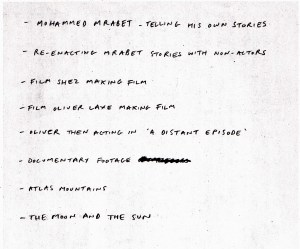 - MOHAMMED MRABET - TELLING HIS OWN STORIES
- RE-ENACTING MRABET STORIES WITH NON-ACTORS
- FILM SHEZ MAKING FILM
- FILM OLIVER LAXE MAKING FILM
- OLIVER THEN ACTING IN 'A DISTANT EPISODE'
- DOCUMENTARY FOOTAGE
- ATLAS MOUNTAINS
- THE MOON AND THE SUN